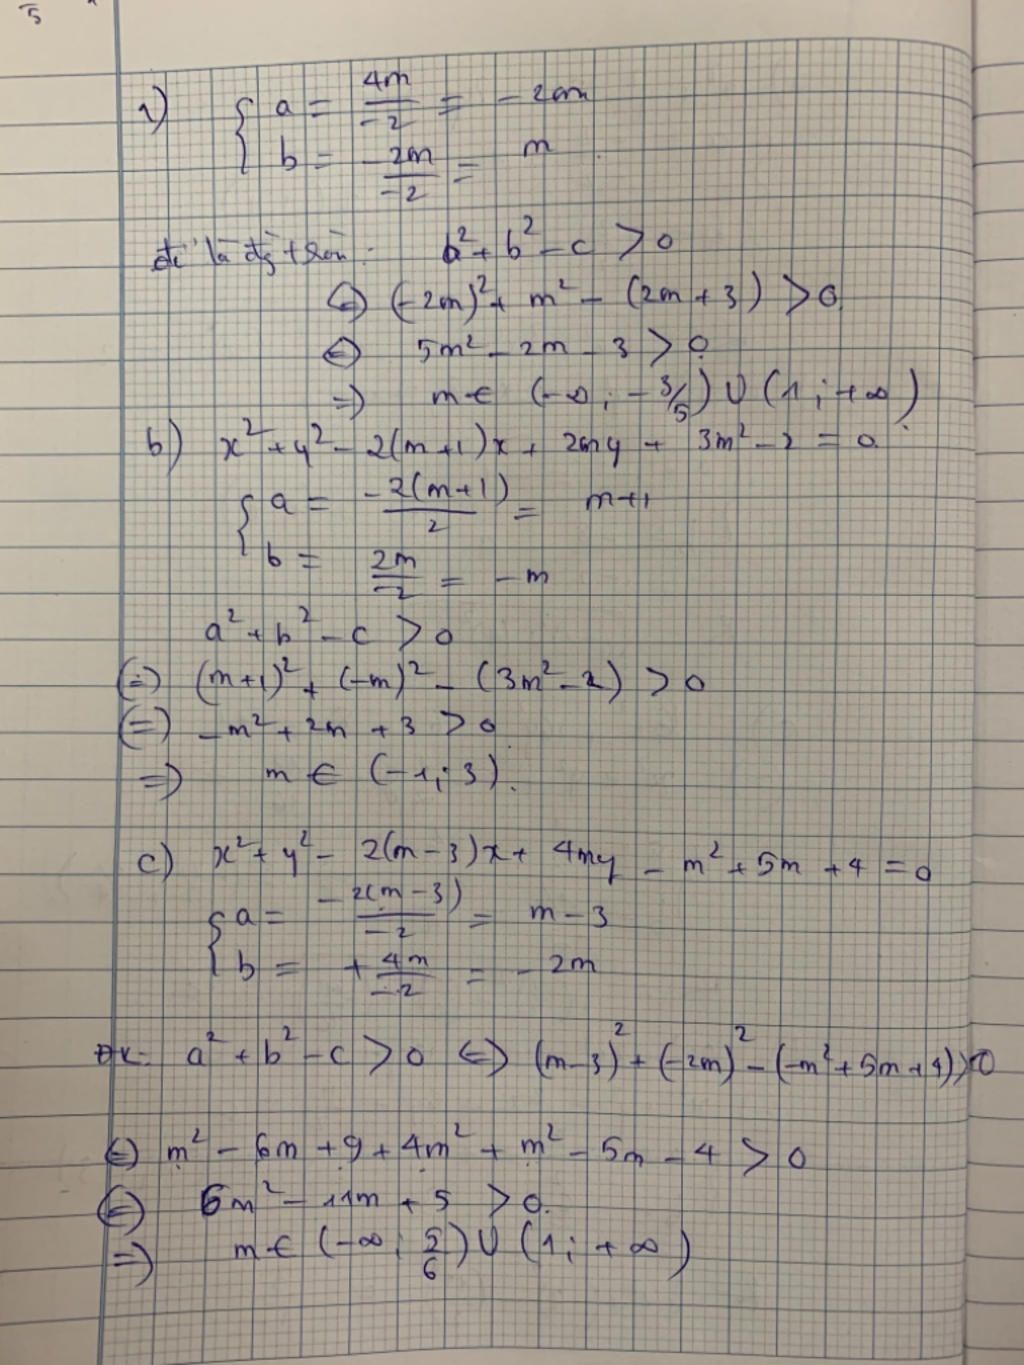 1) { a = 4m/-2 = -2m
b = -2m/-2 = m
để là đg tròn: b² + b² - c > 0
⇔ (-2m)² + m² - (2m + 3) > 0
⇔ 5m² - 2m - 3 > 0
⇒ m ∈ (-∞; -3/5) ∪ (1; +∞)
b) x² + y² - 2(m+1)x + 2my + 3m² - 2 = 0
{ a = -2(m+1)/2 = m+1
b = 2m/-2 = -m
a² + b² - c > 0
(=) (m+1)² + (-m)² - (3m² - 2) > 0
(=) -m² + 2m + 3 > 0
⇒ m ∈ (-1; 3).
c) x² + y² - 2(m-3)x + 4my - m² + 5m + 4 = 0
{ a = -2(m-3)/-2 = m - 3
b = + 4m/-2 = - 2m
ĐK: a² + b² - c > 0 ⇔ (m-3)² + (-2m)² - (-m² + 5m + 4) > 0
⇔ m² - 6m + 9 + 4m² + m² - 5m - 4 > 0
⇔ 6m² - 11m + 5 > 0.
⇒ m ∈ (-∞; 5/6) ∪ (1; +∞)